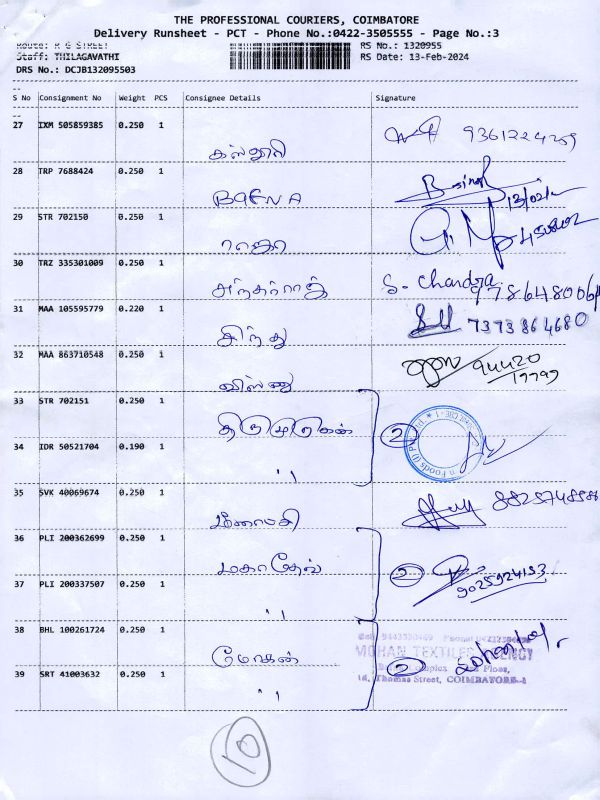 THE PROFESSIONAL COURIERS, COIMBATORE
Delivery Runsheet - PCT - Phone No.:0422-3505555 - Page No.:3
Route: R G STREET RS No.: 1320955
Staff: THILAGAVATHI RS Date: 13-Feb-2024
DRS No.: DCJB132095503
S No Consignment No Weight PCS Consignee Details Signature
27 IXM 505859385 0.250 1
கஸ்தூரி
28 TRP 7688424 0.250 1
BAFNA 13/02/
29 STR 702150 0.250 1
ராஜா
30 TRZ 335301009 0.250 1 S. Chandra
9786480064
31 MAA 105595779 0.220 1 7373864680
சிந்து
32 MAA 863710548 0.250 1 94420
விஸ்ணு 17797
33 STR 702151 0.250 1
திருமுருகன் 2
34 IDR 50521704 0.190 1
" n Foods (I) P
35 SVK 40069674 0.250 1
மீனாட்சி
36 PLI 200362699 0.250 1
மகாதேவ் 2
37 PLI 200337507 0.250 1 9025924153
"
38 BHL 100261724 0.250 1
மோகன் MOHAN TEXTILES AGENCY
39 SRT 41003632 0.250 1 2
" Thomas Street, COIMBATORE-1
10